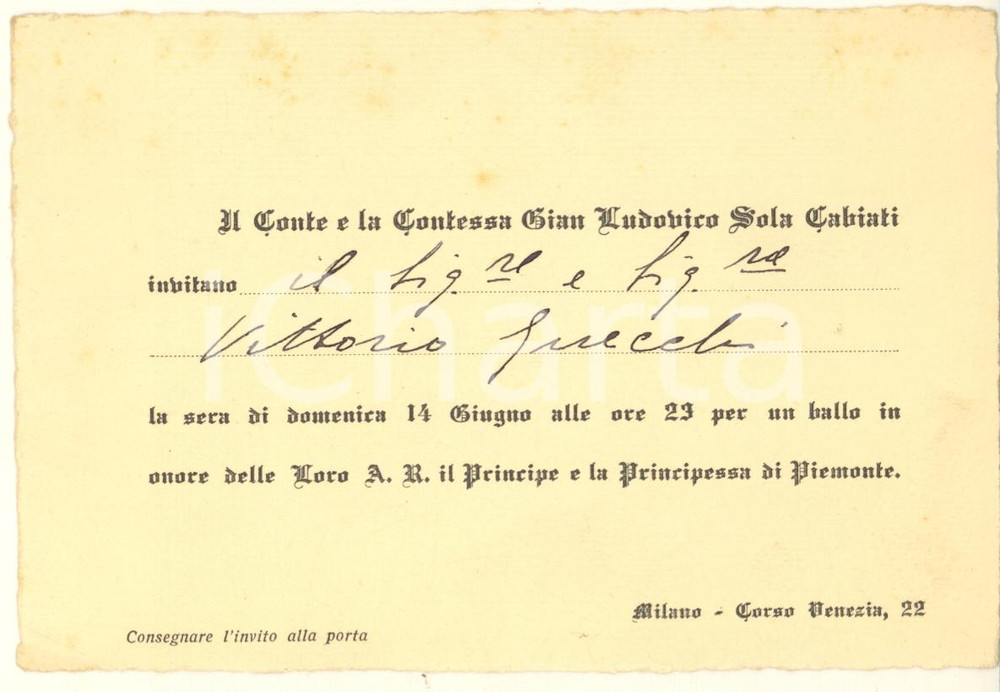 Il Conte e la Contessa Gian Ludovico Sola Cabiati
invitano il Sig.re e Sig.ra
Vittorio Grecchi
la sera di domenica 14 Giugno alle ore 23 per un ballo in
onore delle Loro A. R. il Principe e la Principessa di Piemonte.
Milano - Corso Venezia, 22
Consegnare l'invito alla porta
iCharta